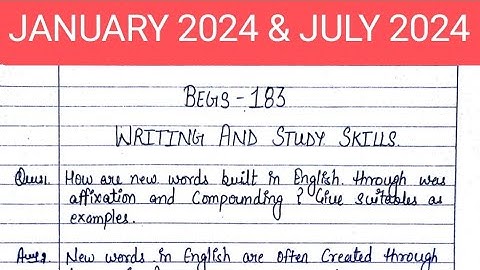 JANUARY 2024 & JULY 2024
BEGS - 183
WRITING AND STUDY SKILLS.
Ques1. How are new words built in English. through was
affixation and Compounding ? Give suitables as
examples.
Ans1. New words in English are often Created through